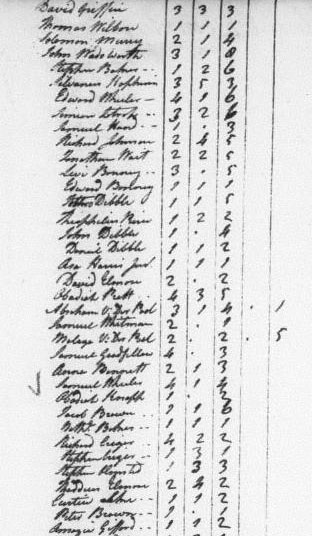 David Griffin 3 3 3
Thomas Wilbor 1 1 1
Solomon Murry 2 1 4
John Wadsworth 3 1 8
Stephen Baker 1 2 6
Silvanus Hopkins 3 5 3
Edward Wheeler 4 1 6
Simeon 3 2 6
Samuel Hand 1 . 3
Richard Johnson 2 4 5
Jonathan Wait 2 2 5
Levi Bonney 3 . 5
Edward Bonney 1 1 1
Dibble 1 1 5
Theophilus 1 2 2
John Dibble 1 . 4
Daniel Dibble 1 1 2
Asa Harris Jun. 1 1 1
David Elmore 2 . 2
Obadiah Pratt 4 3 5
Abraham V. Dr Bol 3 1 4 . 1
Samuel Whitman 2 . 1
V. Dr Bol 2 . 2 . 5
Samuel Goodfellow 4 . 3
Bennett 2 1 3
Samuel Wheeler 4 1 4
Obadiah 1 . 3
Jacob Brown 1 1 6
Baker 1 1 1
Richard 4 2 2
Stephen 1 3 1
Stephen 1 3 3
Thaddeus Elmore 2 4 2
Curtice 1 1 2
Peter Brown 1 . 1
Gifford 1 1 2